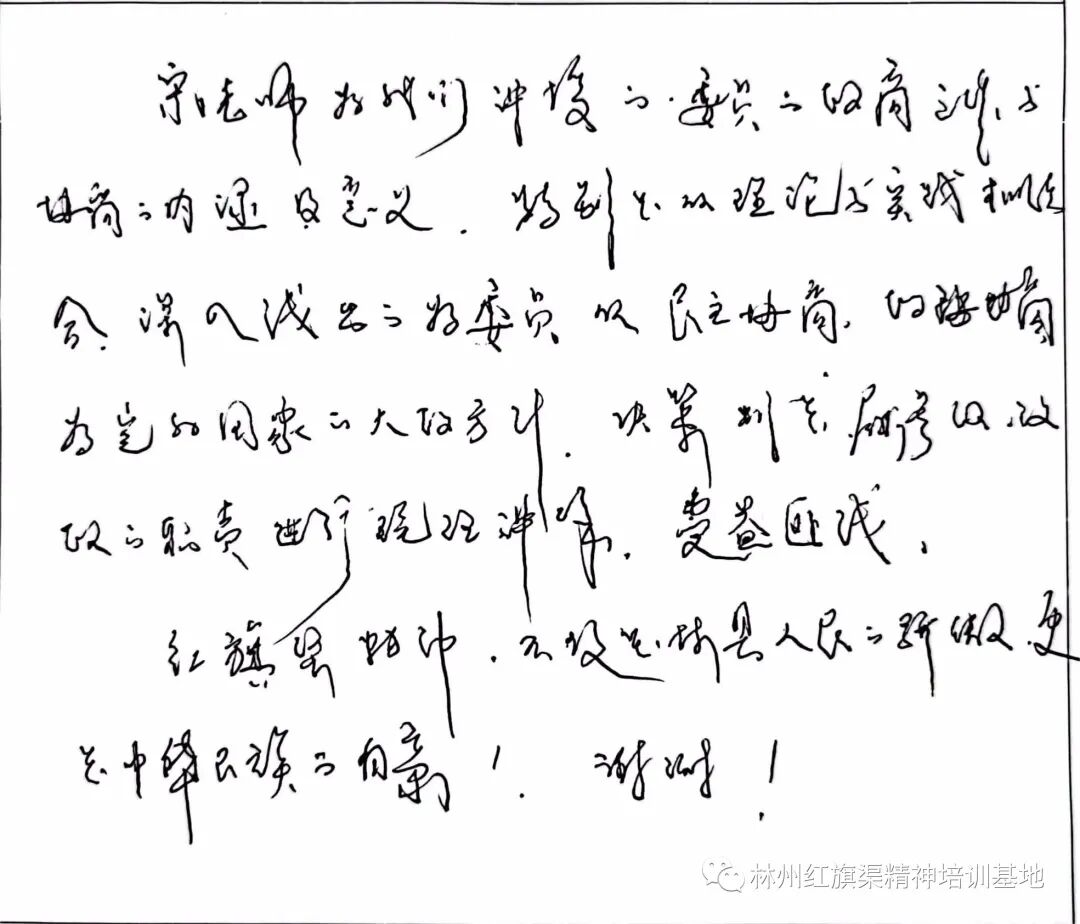 宋老师给我们讲授的委员的政商与
协商的内涵及意义.特别是从理论与实践相结
合.深入浅出的将委员从民主协商、
为党和国家的大政方针.决策
政的职责进行梳理讲解.受益匪浅.
红旗渠精神.不仅是林县人民的骄傲.更
是中华民族的自豪！谢谢！
林州红旗渠精神培训基地